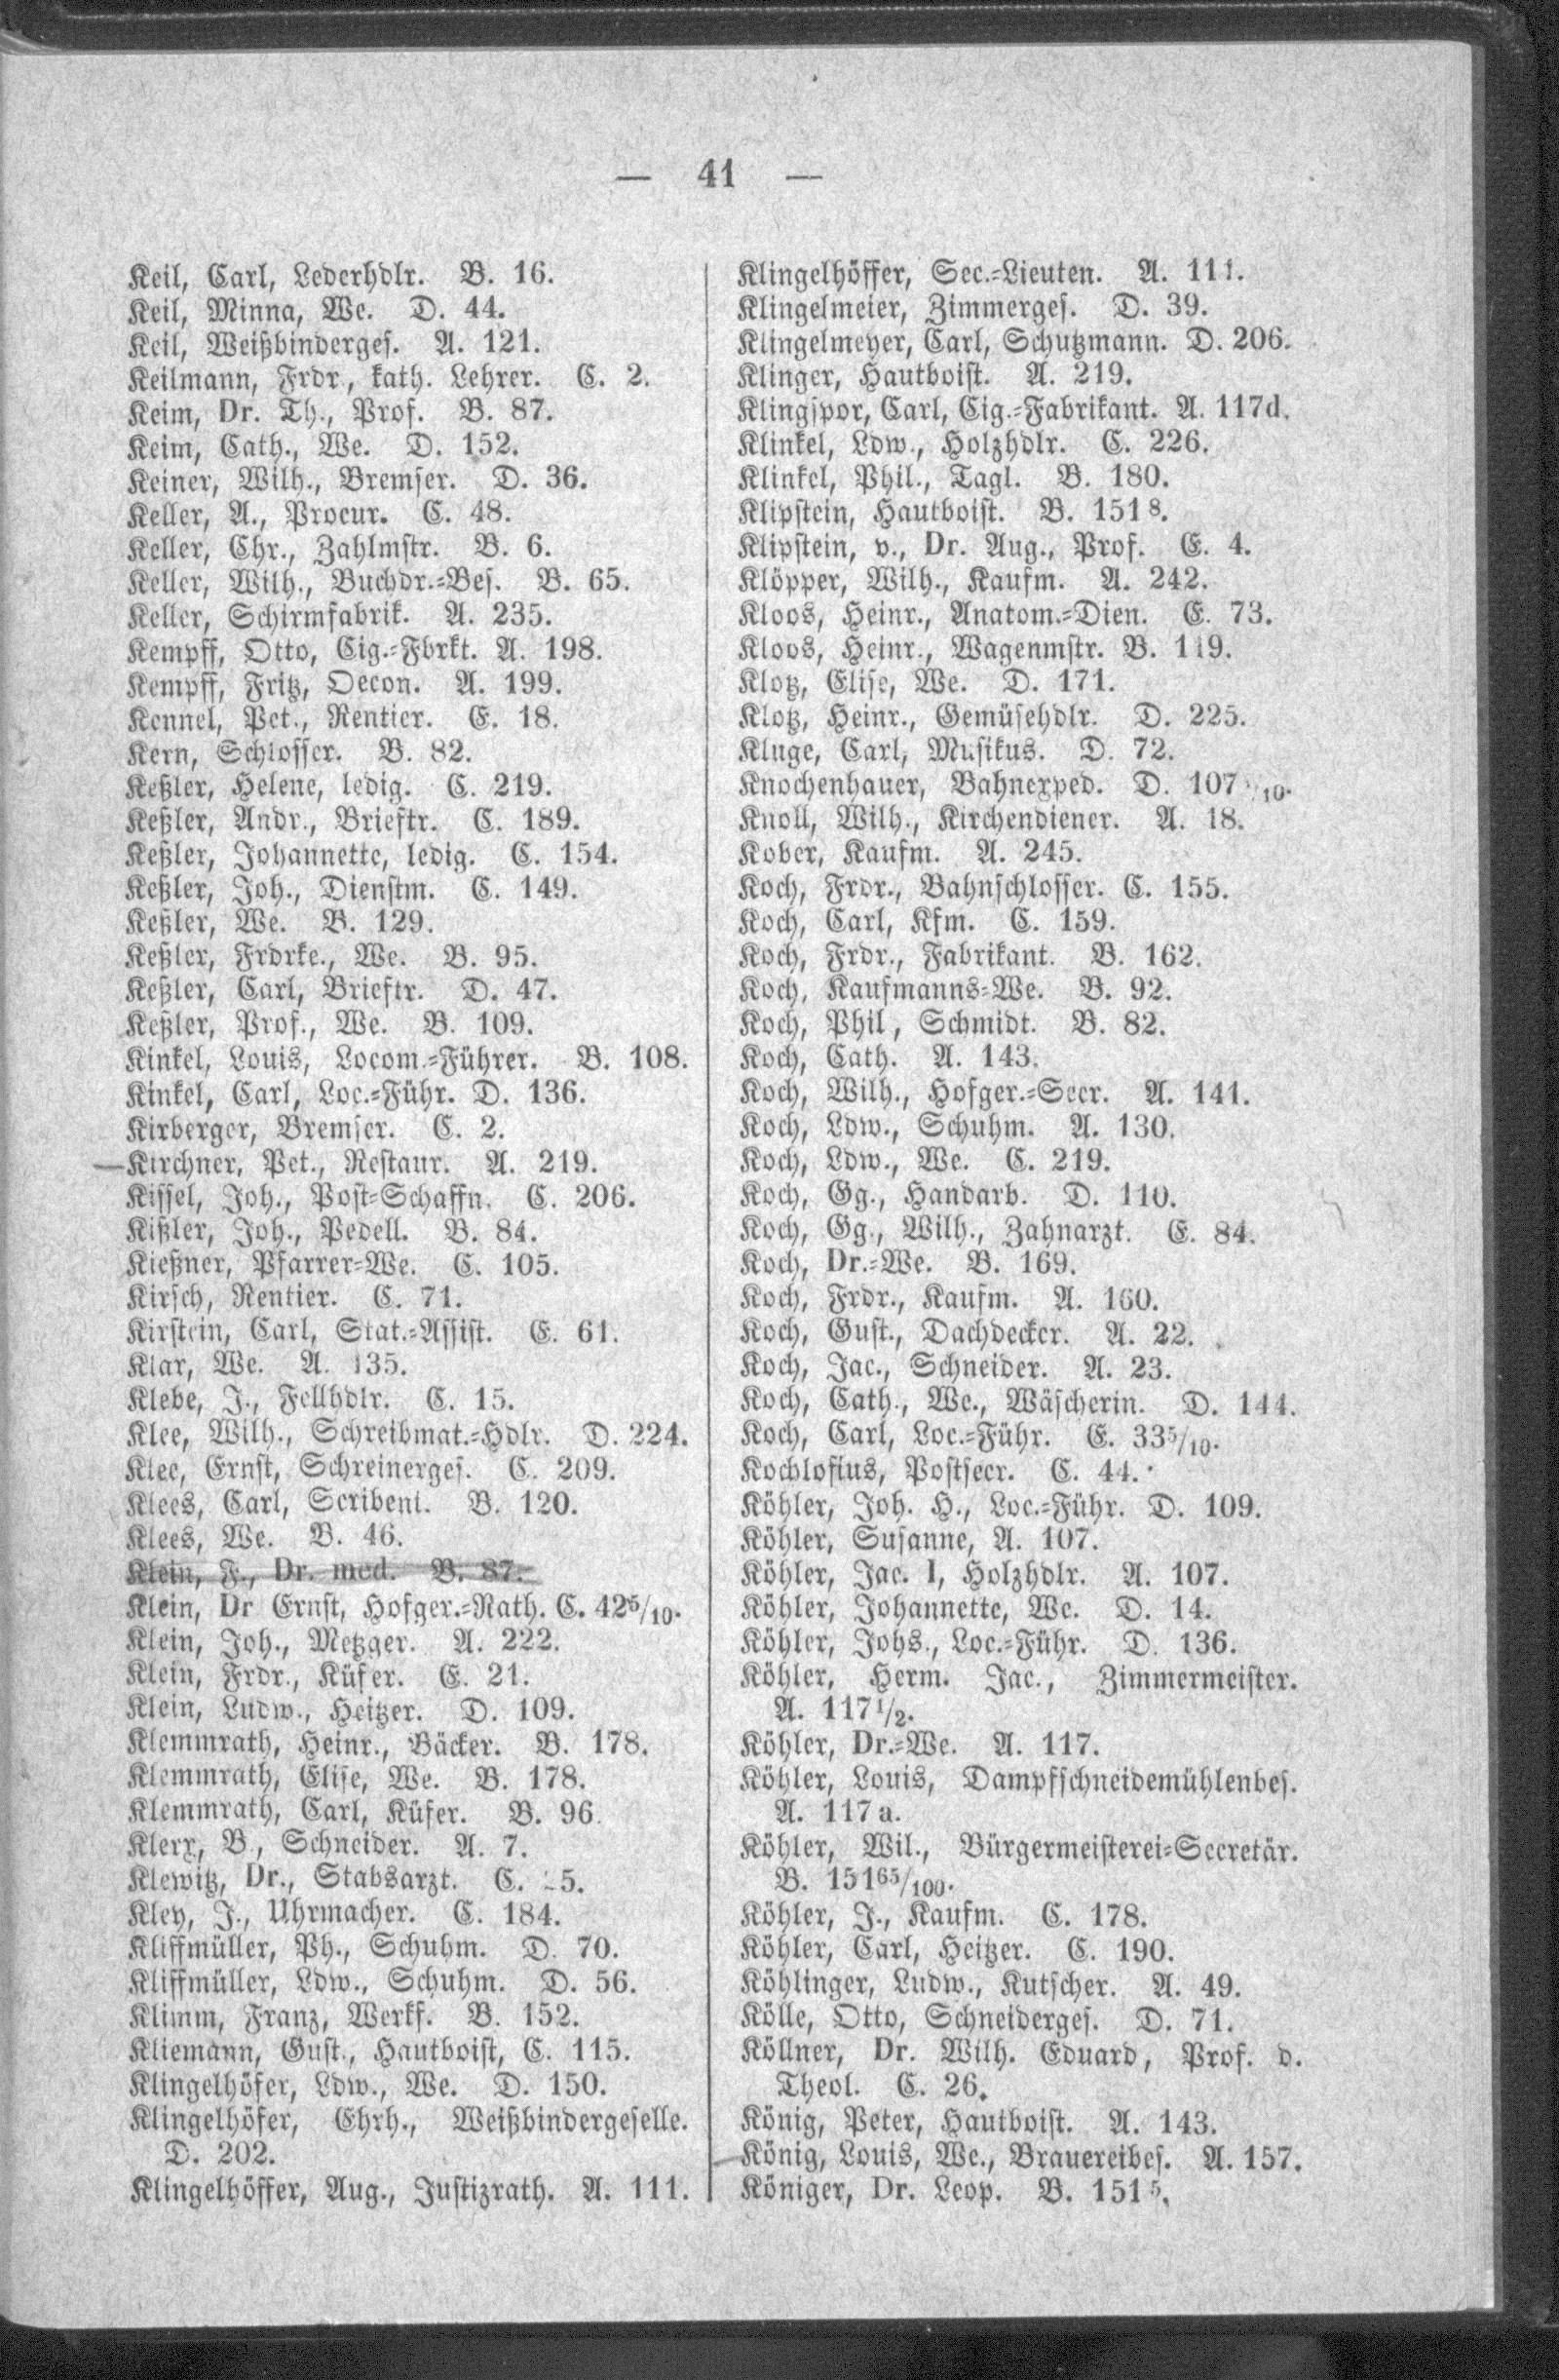 — 41 —
Keil, Carl, Lederhdlr. B. 16.
Keil, Minna, We. D. 44.
Keil, Weißbinderges. A. 121.
Keilmann, Frdr., kath. Lehrer. C. 2.
Keim, Dr. Th., Prof. B. 87.
Keim, Cath., We. D. 152.
Keiner, Wilh., Bremser. D. 36.
Keller, A., Procur. C. 48.
Keller, Chr., Zahlmstr. B. 6.
Keller, Wilh., Buchdr.=Bes. B. 65.
Keller, Schirmfabrik. A. 235.
Kempff, Otto, Cig.=Fbrkt. A. 198.
Kempff, Fritz, Oecon. A. 199.
Kennel, Pet., Rentier. E. 18.
Kern, Schlosser. B. 82.
Keßler, Helene, ledig. C. 219.
Keßler, Andr., Brieftr. C. 189.
Keßler, Johannette, ledig. C. 154.
Keßler, Joh., Dienstm. C. 149.
Keßler, We. B. 129.
Keßler, Frdrke., We. B. 95.
Keßler, Carl, Brieftr. D. 47.
Keßler, Prof., We. B. 109.
Kinkel, Louis, Locom.=Führer. B. 108.
Kinkel, Carl, Loc.=Führ. D. 136.
Kirberger, Bremser. C. 2.
Kirchner, Pet., Restaur. A. 219.
Kissel, Joh., Post=Schaffn. C. 206.
Kißler, Joh., Pedell. B. 84.
Kießner, Pfarrer=We. C. 105.
Kirsch, Rentier. C. 71.
Kirstein, Carl, Stat.=Assist. E. 61.
Klar, We. A. 135.
Klebe, J., Fellhdlr. C. 15.
Klee, Wilh., Schreibmat.=Hdlr. D. 224.
Klee, Ernst, Schreinerges. C. 209.
Klees, Carl, Scribent. B. 120.
Klees, We. B. 46.
Klein, F., Dr. med. B. 87.
Klein, Dr Ernst, Hofger.=Rath. C. 42⁵/₁₀.
Klein, Joh., Metzger. A. 222.
Klein, Frdr., Küfer. E. 21.
Klein, Ludw., Heitzer. D. 109.
Klemmrath, Heinr., Bäcker. B. 178.
Klemmrath, Elise, We. B. 178.
Klemmrath, Carl, Küfer. B. 96.
Klerx, B., Schneider. A. 7.
Klewitz, Dr., Stabsarzt. C.
Kley, J., Uhrmacher. C. 184.
Kliffmüller, Ph., Schuhm. D. 70.
Kliffmüller, Ldw., Schuhm. D. 56.
Klimm, Franz, Werkf. B. 152.
Kliemann, Gust., Hautboist, C. 115.
Klingelhöfer, Ldw., We. D. 150.
Klingelhöfer, Ehrh., Weißbindergeselle.
D. 202.
Klingelhöffer, Aug., Justizrath. A. 111.
Klingelhöffer, Sec.=Lieuten. A. 111.
Klingelmeier, Zimmerges. D. 39.
Klingelmeyer, Carl, Schutzmann. D. 206.
Klinger, Hautboist. A. 219.
Klingspor, Carl, Cig.=Fabrikant. A. 117d.
Klinkel, Ldw., Holzhdlr. C. 226.
Klinkel, Phil., Tagl. B. 180.
Klipstein, Hautboist. B. 151⁸.
Klipstein, v., Dr. Aug., Prof. E. 4.
Klöpper, Wilh., Kaufm. A. 242.
Kloos, Heinr., Anatom.=Dien. E. 73.
Kloos, Heinr., Wagenmstr. B. 119.
Klotz, Elise, We. D. 171.
Klotz, Heinr., Gemüsehdlr. D. 225.
Kluge, Carl, Musikus. D. 72.
Knochenhauer, Bahnexped. D. 107 /₁₀.
Knoll, Wilh., Kirchendiener. A. 18.
Kober, Kaufm. A. 245.
Koch, Frdr., Bahnschlosser. C. 155.
Koch, Carl, Kfm. C. 159.
Koch, Frdr., Fabrikant. B. 162.
Koch, Kaufmanns=We. B. 92.
Koch, Phil, Schmidt. B. 82.
Koch, Cath. A. 143.
Koch, Wilh., Hofger.=Secr. A. 141.
Koch, Ldw., Schuhm. A. 130.
Koch, Ldw., We. C. 219.
Koch, Gg., Handarb. D. 110.
Koch, Gg., Wilh., Zahnarzt. E. 84.
Koch, Dr.=We. B. 169.
Koch, Frdr., Kaufm. A. 160.
Koch, Gust., Dachdecker. A. 22.
Koch, Jac., Schneider. A. 23.
Koch, Cath., We., Wäscherin. D. 144.
Koch, Carl, Loc.=Führ. E. 33⁵/₁₀.
Kochlosius, Postsecr. C. 44.
Köhler, Joh. H., Loc.=Führ. D. 109.
Köhler, Susanne, A. 107.
Köhler, Jac. I, Holzhdlr. A. 107.
Köhler, Johannette, We. D. 14.
Köhler, Johs., Loc.=Führ. D. 136.
Köhler, Herm. Jac., Zimmermeister.
A. 117¹/₂.
Köhler, Dr.=We. A. 117.
Köhler, Louis, Dampfschneidemühlenbes.
A. 117a.
Köhler, Wil., Bürgermeisterei=Secretär.
B. 151⁶⁵/₁₀₀.
Köhler, J., Kaufm. C. 178.
Köhler, Carl, Heitzer. C. 190.
Köhlinger, Ludw., Kutscher. A. 49.
Kölle, Otto, Schneiderges. D. 71.
Köllner, Dr. Wilh. Eduard, Prof. d.
Theol. C. 26.
König, Peter, Hautboist. A. 143.
König, Louis, We., Brauereibes. A. 157.
Königer, Dr. Leop. B. 151⁵.